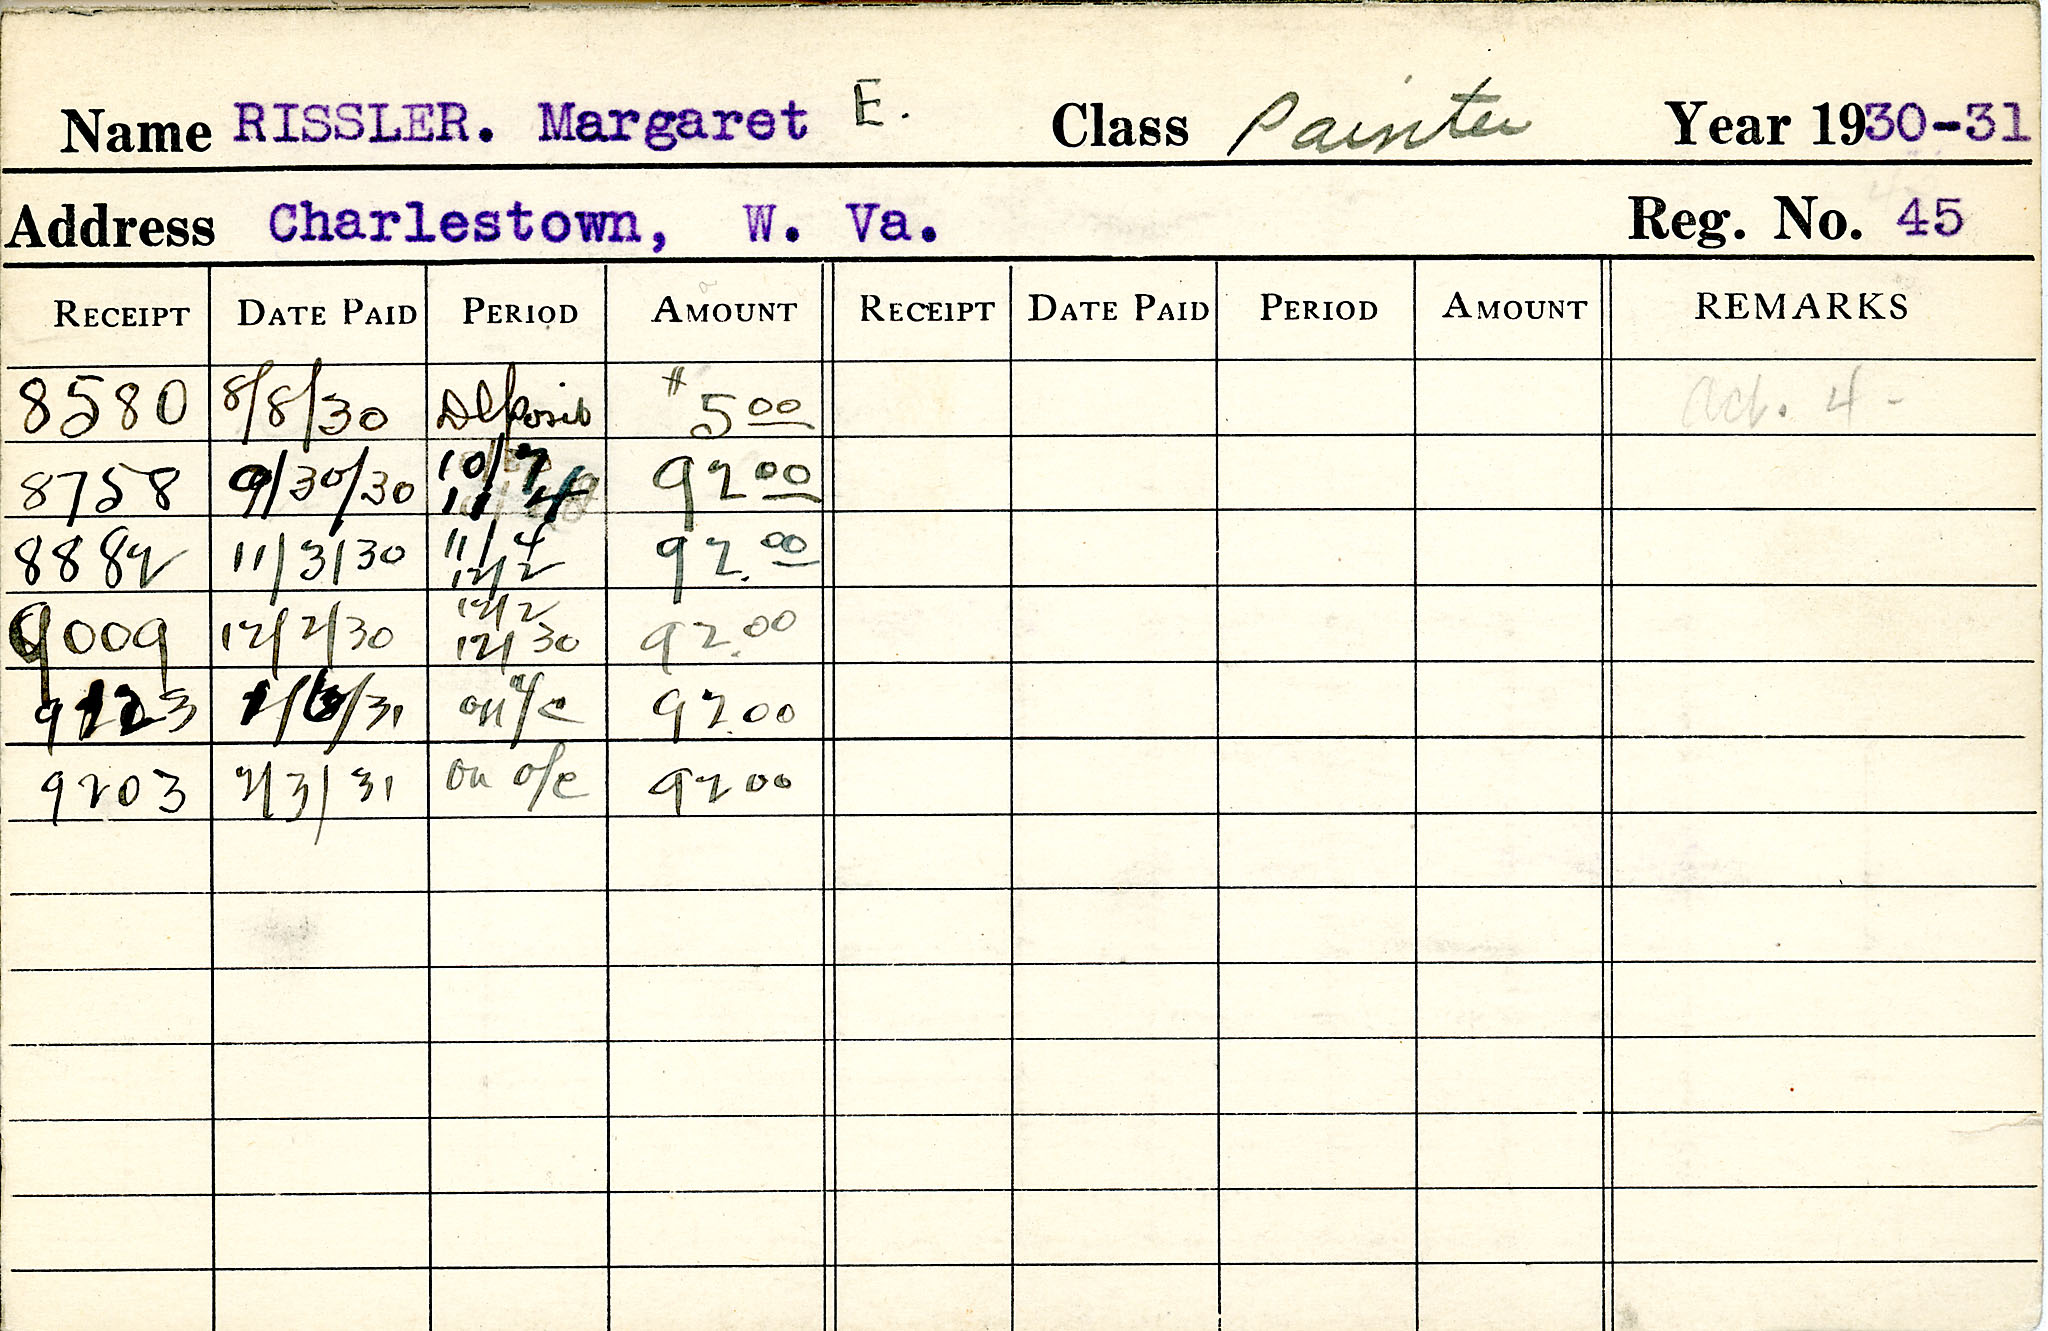 Name RISSLER. Margaret E. Class Painter Year 1930-31
Address Charlestown, W. Va. Reg. No. 45
RECEIPT DATE PAID PERIOD AMOUNT RECEIPT DATE PAID PERIOD AMOUNT REMARKS
8580 8/8/30 Deposit #5 00 Oct. 4-
8758 9/30/30 10/7 11/4 92 00
8882 11/3/30 11/4 12/2 92.00
9009 12/2/30 12/2 12/30 92.00
9123 1/6/31 on a/c 92 00
9203 2/3/31 on a/c 92 00